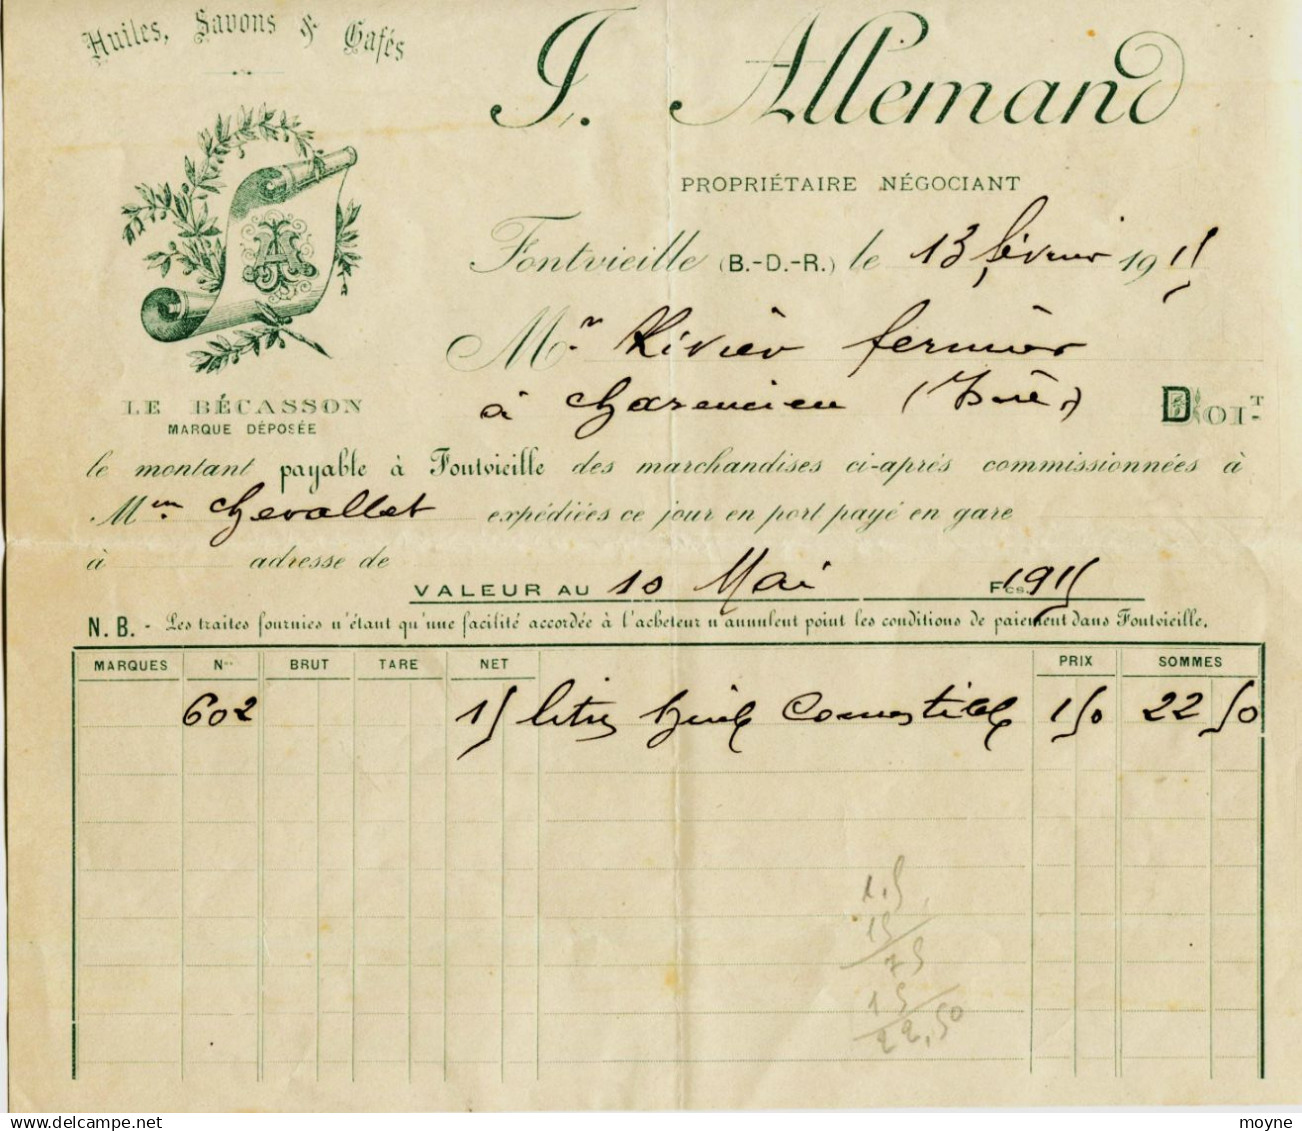 Huiles, Savons & Cafés
J. Allemand
PROPRIÉTAIRE NÉGOCIANT
Fontvieille (B.-D.-R.) le 13 février 1915
Mr. Rivier fermier
à (Isère) DOIT
LE BÉCASSON
MARQUE DÉPOSÉE
le montant payable à Fontvieille des marchandises ci-après commissionnées à
Mon. Chevallet expédiées ce jour en port payé en gare
à adresse de
VALEUR AU 10 Mai Fcs. 1915
N. B. - Les traites fournies n'étant qu'une facilité accordée à l'acheteur n'annulent point les conditions de paiement dans Fontvieille.
MARQUES Nos BRUT TARE NET PRIX SOMMES
602 15 litres huile Comestible 1 50 22 50
1.5
15
75
15
22,50
moyne